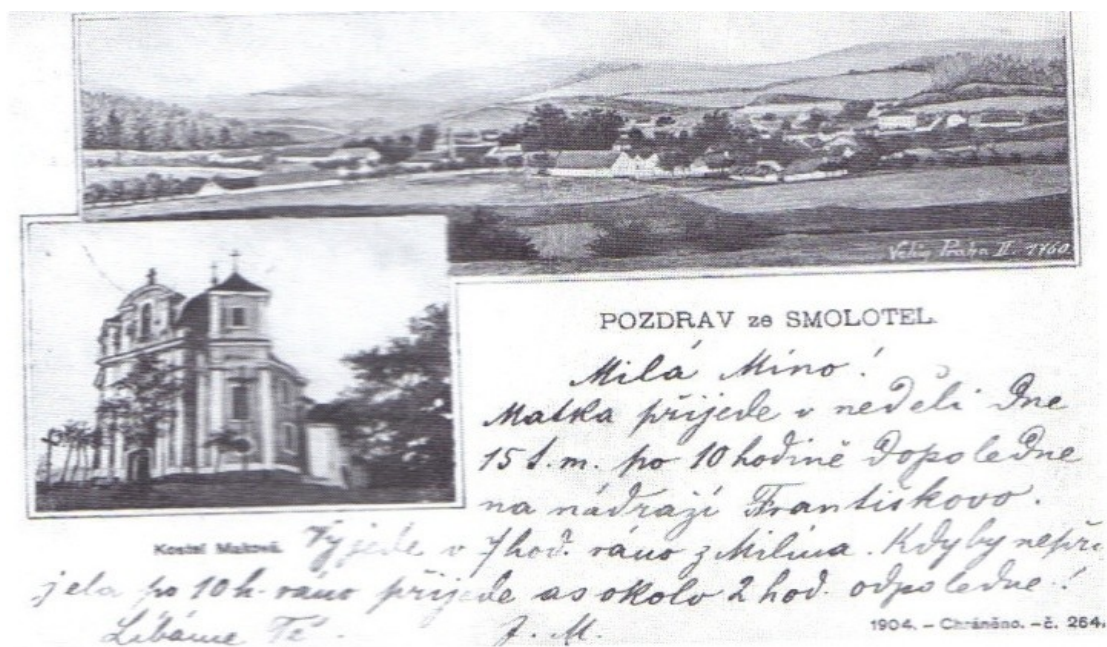 Praha II. 1760.
POZDRAV ze SMOLOTEL.
Milá Míno!
Matka přijede v neděli dne
15 t.m. po 10 hodině dopoledne
na nádraží Františkovo.
Kostel Maková.
Vyjede v 7 hod. ráno z Milína. Kdyby nepři
jela po 10 h. ráno přijede as okolo 2 hod. odpoledne!
Líbáme Tě.
J. M.
1904. – Chráněno. – č. 264.